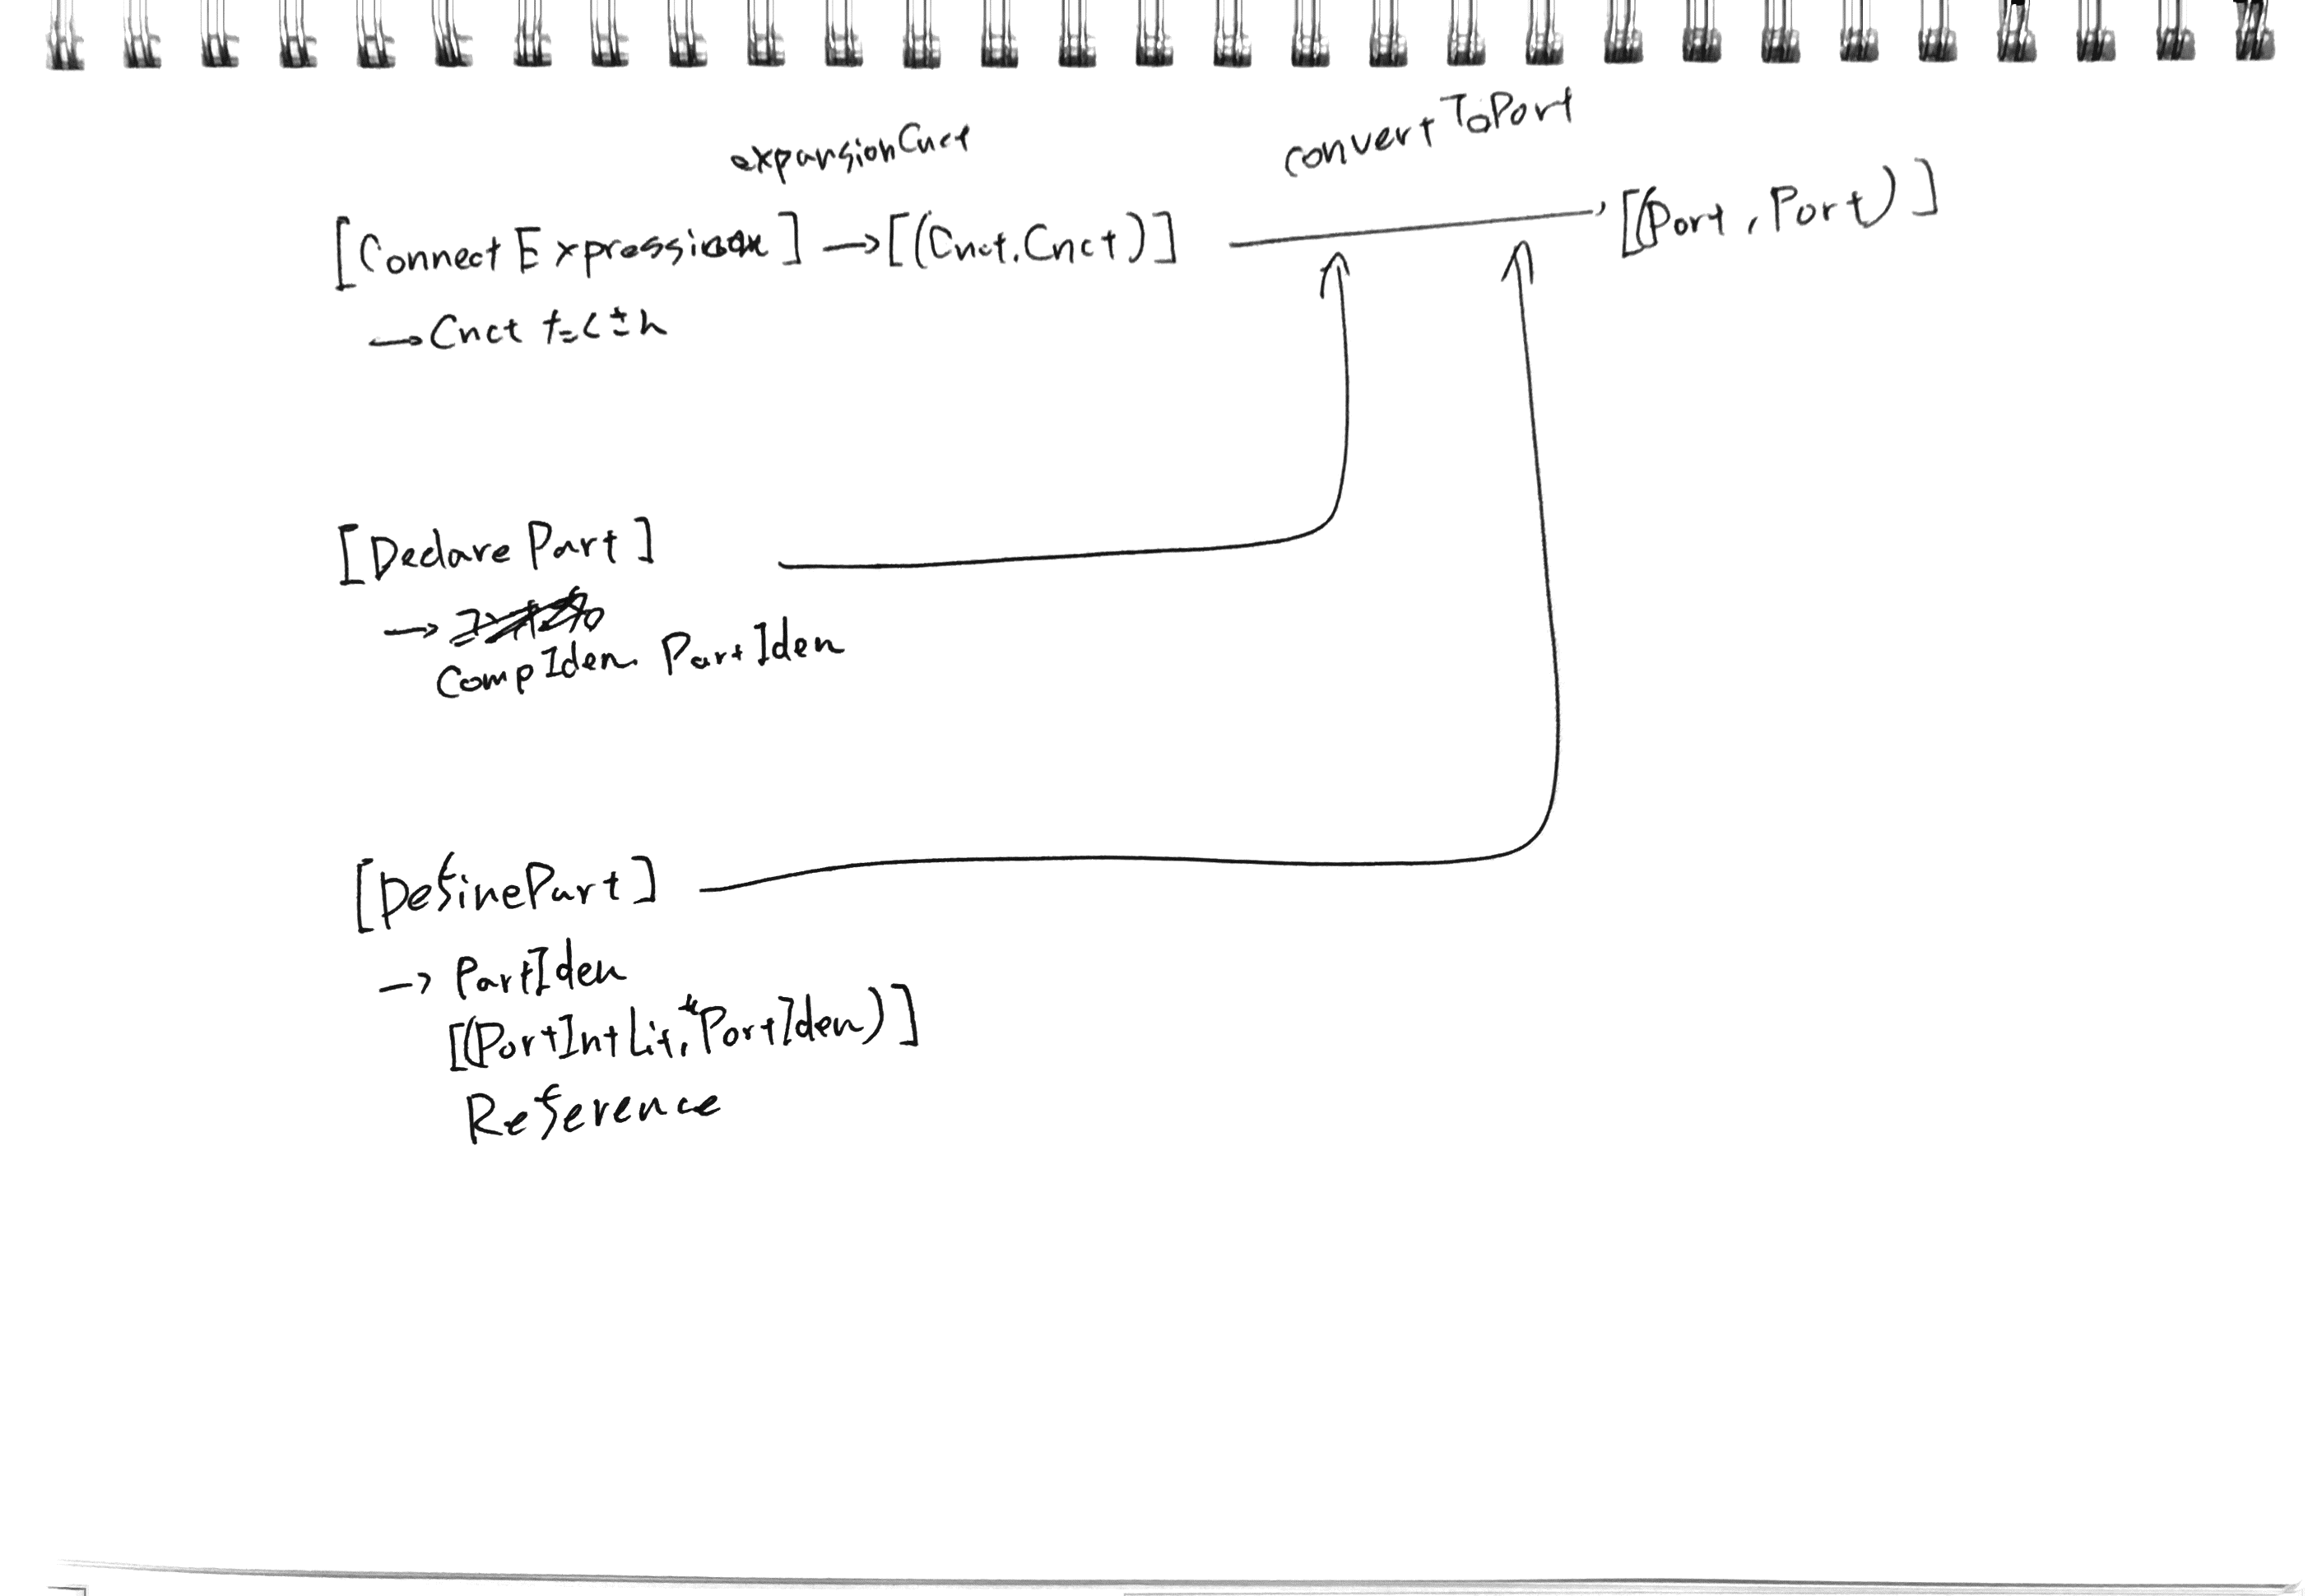 expansionCnct
convertToPort
[ConnectExpression] → [(Cnct.Cnct)] → [(Port, Port)]
→ Cnct たくさん
[DeclarePart]
→
CompIden. PartIden
[DefinePart]
→ PartIden
[(PortIntLit, *PortIden)]
Reference